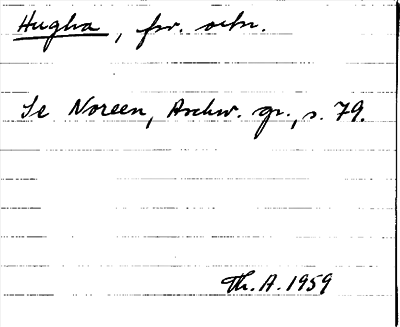 Hugha, fsv. ortn.
Se Noreen, Archiv. gr., s. 79.
Th. A. 1959